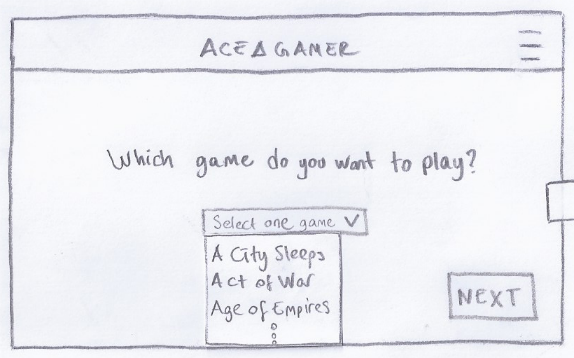 ACE∆GAMER
Which game do you want to play?
Select one game
A City Sleeps
Act of War
Age of Empires
NEXT